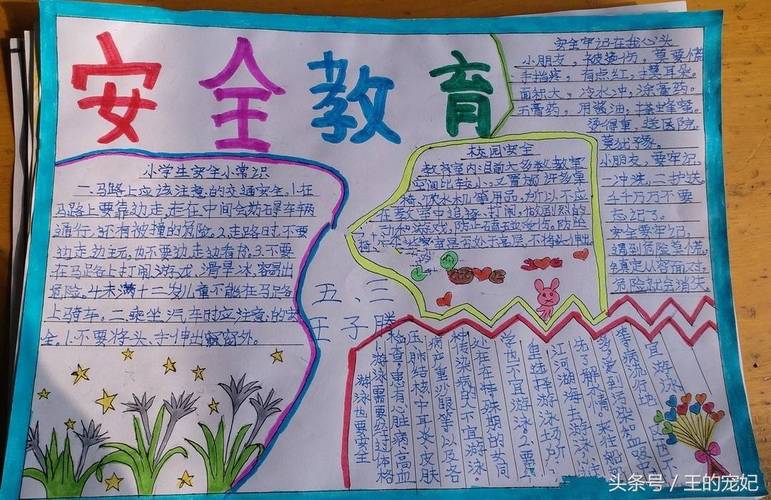 安全教育
小学生安全小常识
一、马路上应该注意的交通安全,1.在
马路上要靠边走,走在中间会妨碍车辆
通行,还有被撞的危险。2.走路时,不要
边走边玩,也不要边走边看书,3.不要
在马路上打闹游戏,滑旱冰,容易出
危险。4.未满十二岁儿童不能在马路
上骑车。二乘坐汽车时应注意的安
全,1.不要将头、手伸出窗外。
五、三
王子腾
校园安全
教室里内:目前大多数教室
空间比较小,又置放许多桌
椅、饮水机等用品,所以不应
在教室中追逐、打闹,做剧烈的
运动和游戏,防止磕碰受伤。防坠
安全牢记在我心头
小朋友,被烫伤,莫要慌
手指疼,有点红,捏耳朵。
面积大,冷水冲,涂膏药。
无膏药,用酱油,搽蜂蜜。
烫得重,送医院。
莫犹豫。
小朋友,要牢记。
一冲洗,二护送
千千万万不要
忘记了。
安全要牢记,
遇到危险莫慌
镇定从容面对
危险就会消失
游泳也要安全
游泳需要经过体格
检查患有心脏病高血
压肺结核中耳炎皮肤
病严重沙眼等以及各
种传染病的人不宜游泳。
处在特殊期的女同
学也不宜游泳。2.要
里选择游泳场所,
江河湖海去游泳
先了解水情。
宜游泳
头条号/王的宠妃